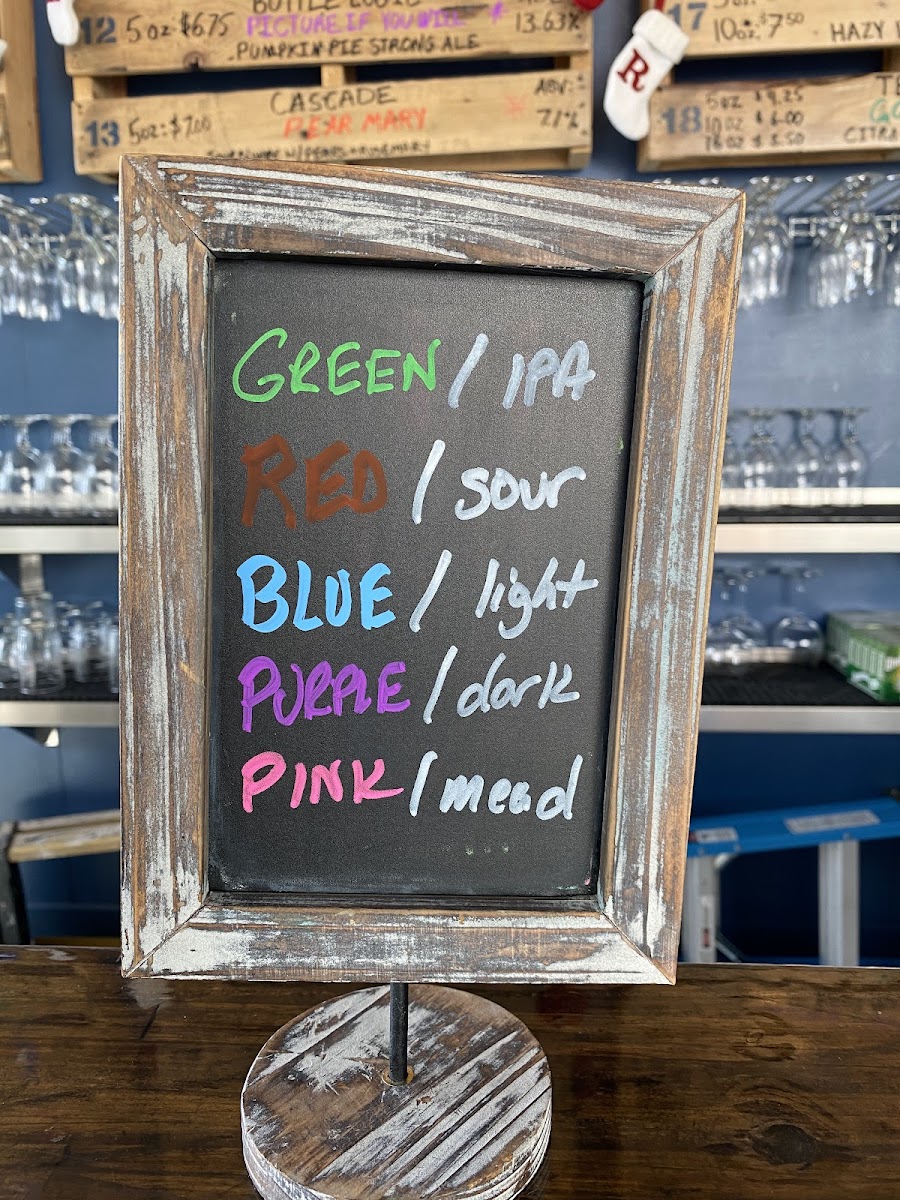 BOTTLE LOGIC
12 5oz $6.75 PICTURE IF YOU WILL 13.63%
PUMPKIN PIE STRONG ALE
CASCADE ABV:
13 5oz: $7.00 PEAR MARY 7.1%
R
17
10oz: $7.50 HAZY
18 5oz $4.25
10oz $6.00
16oz $8.50 CITRA
GREEN / IPA
RED / sour
BLUE / light
PURPLE / dark
PINK / mead